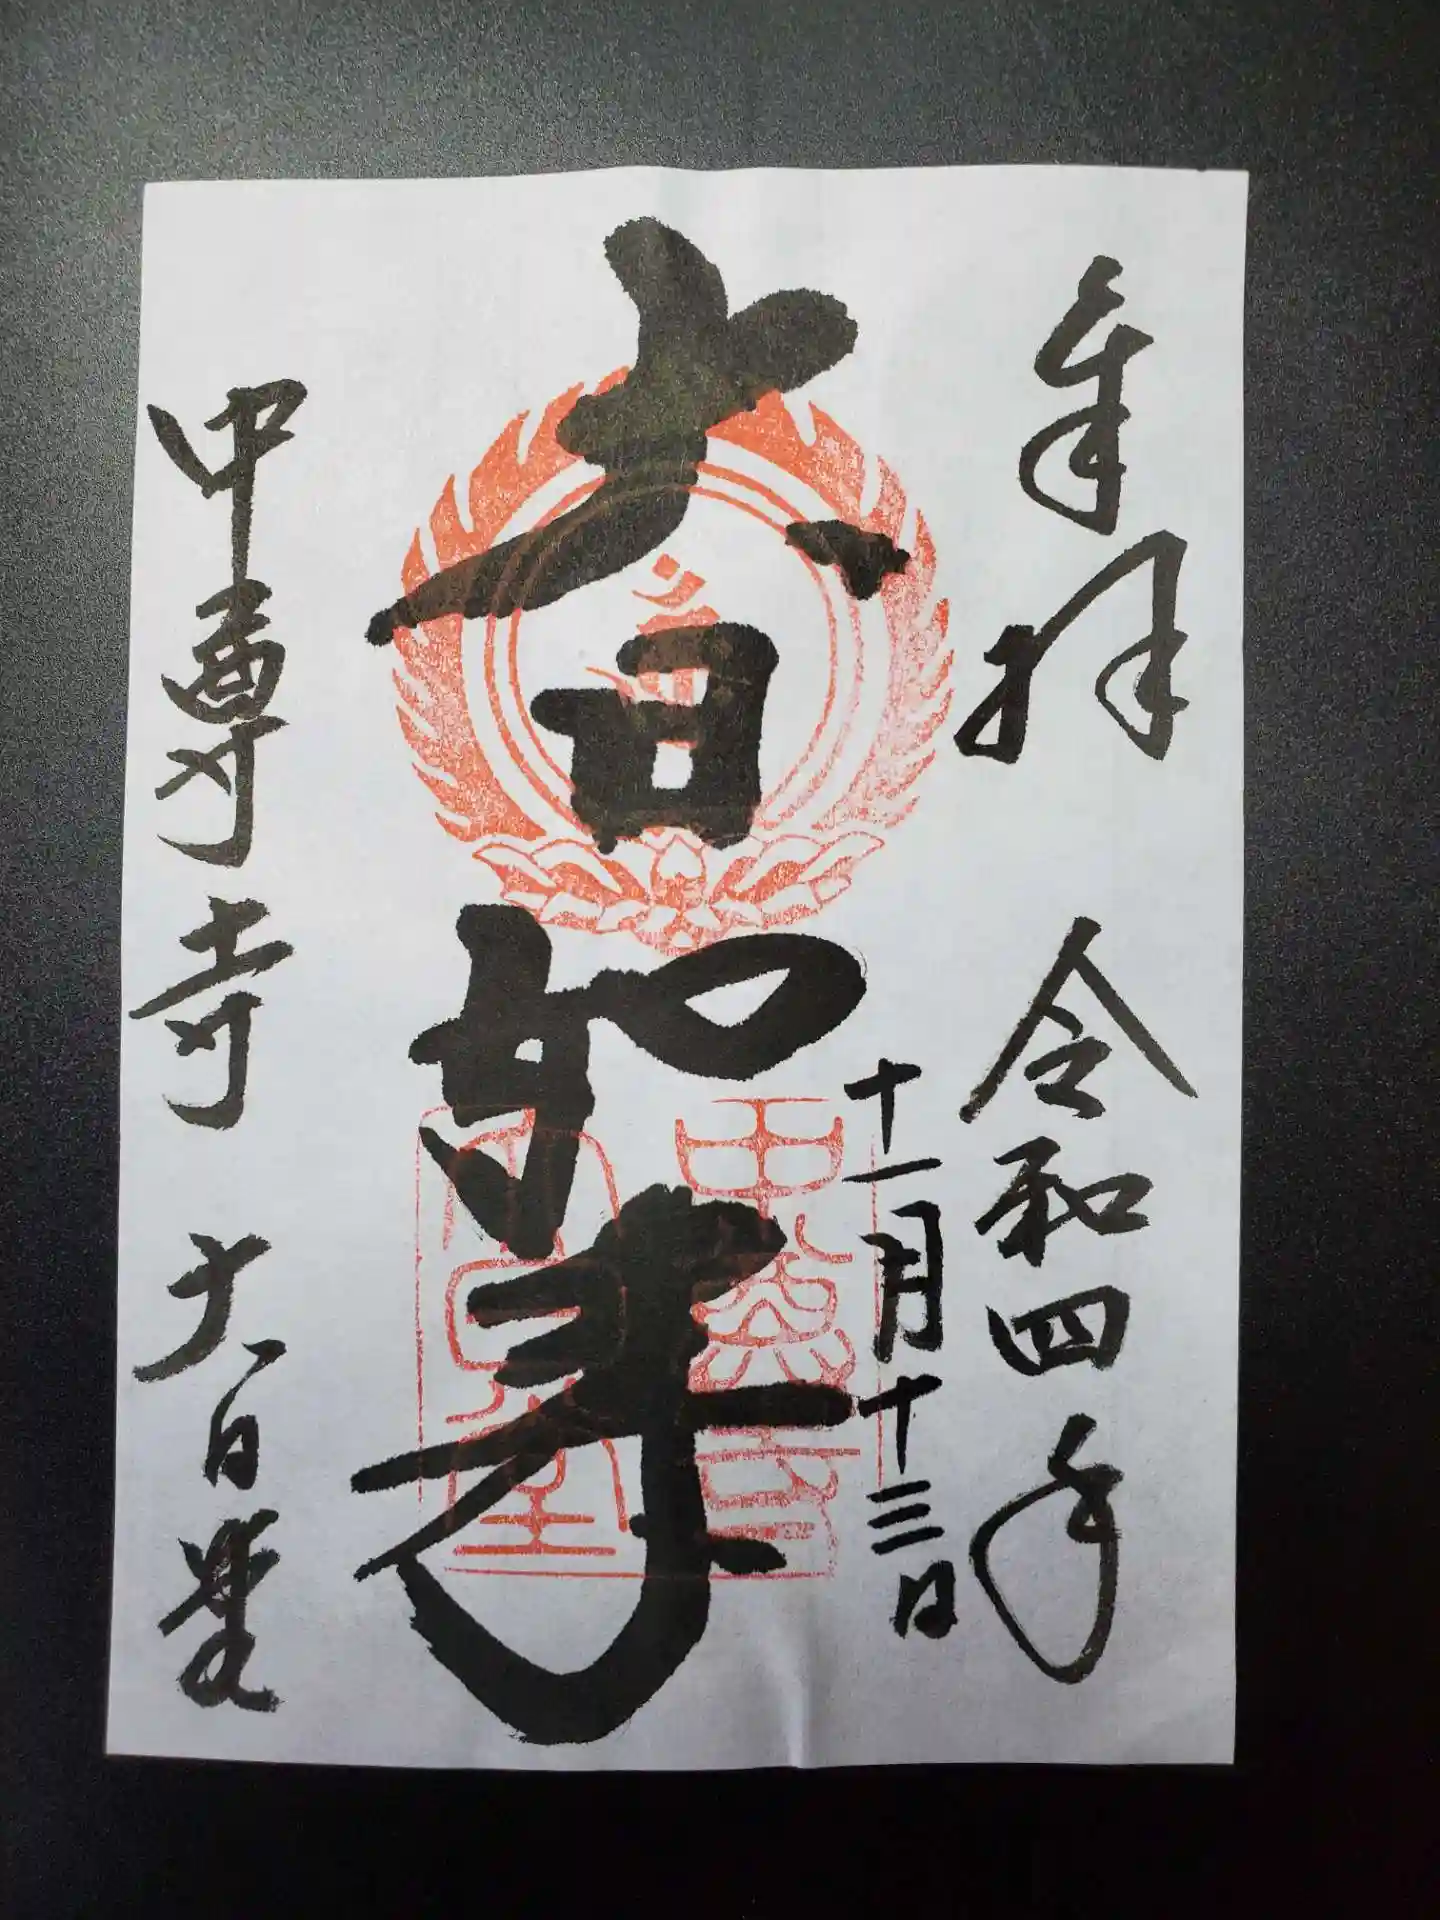 奉拝 令和四年
十一月十三日
大日如来
中尊寺 大日堂